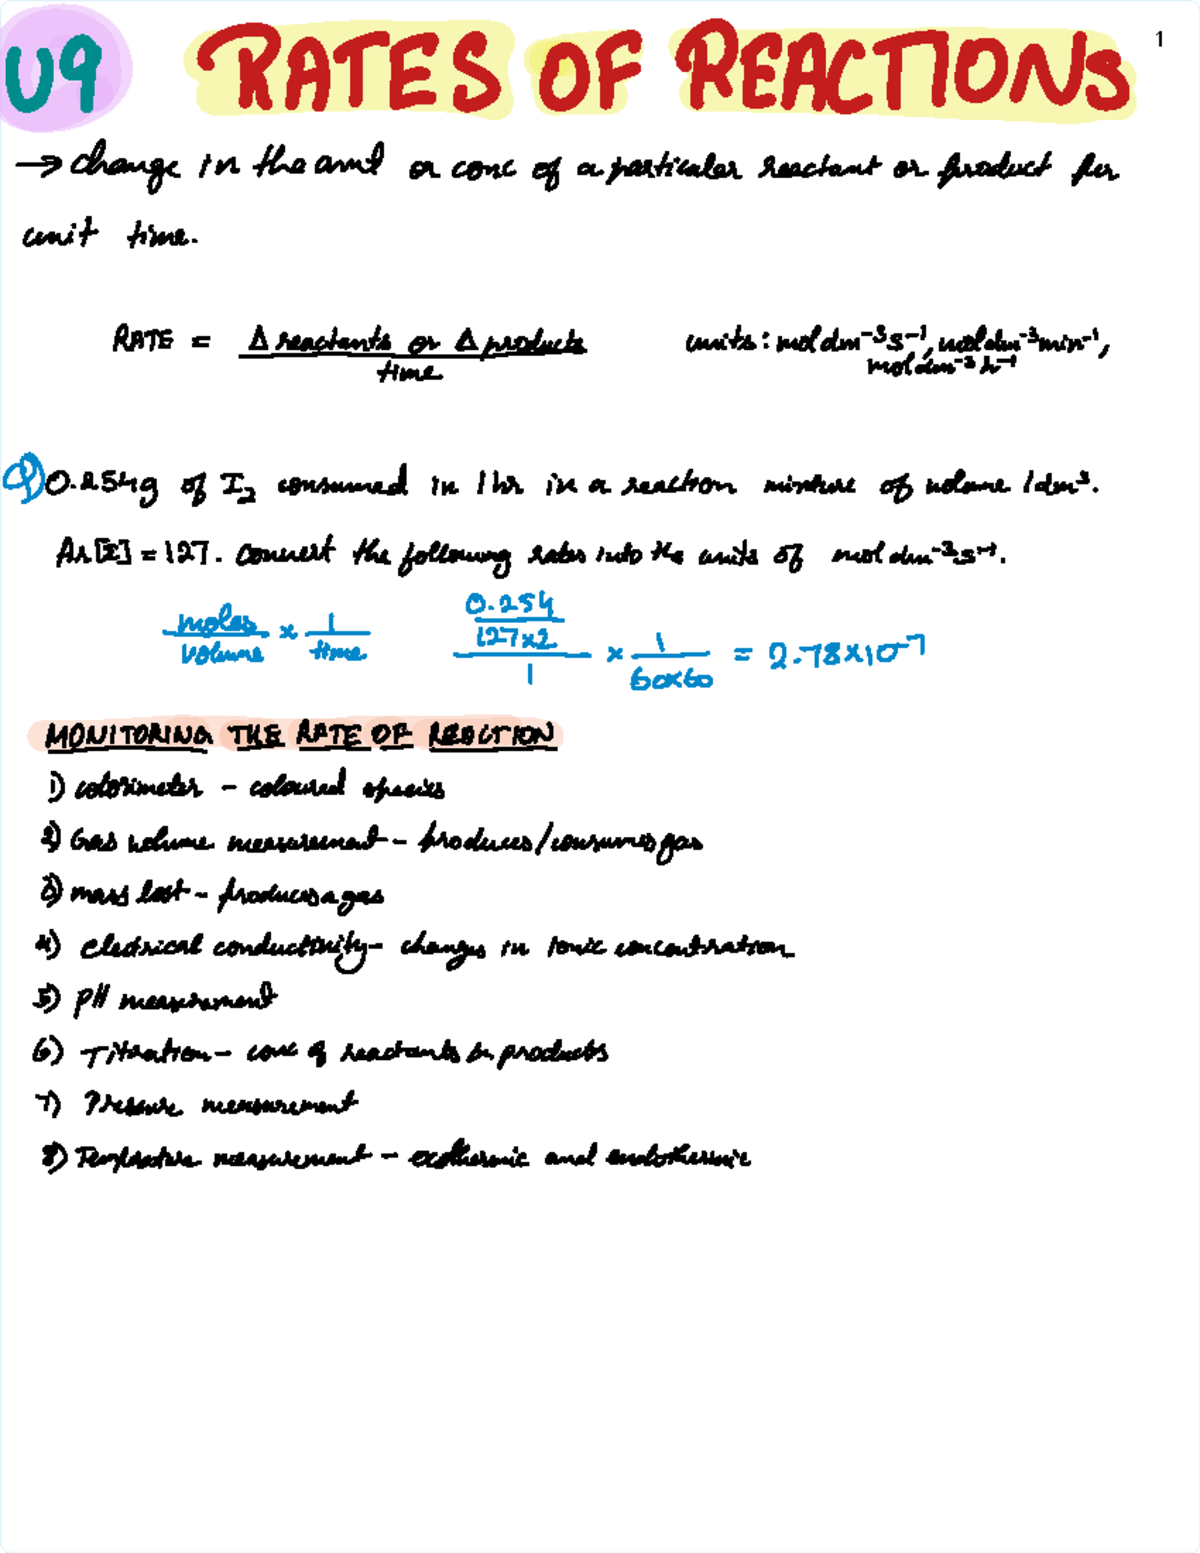 U9 RATES OF REACTIONS 1
→ change in the amt or conc of a particular reactant or product per
unit time.
RATE = Δ reactants or Δ products / time units : mol dm⁻³ s⁻¹, mol dm⁻³ min⁻¹,
mol dm⁻³ h⁻¹
Q) 0.254g of I₂ consumed in 1 hr in a reaction mixture of volume 1dm³.
Ar[I] = 127. Convert the following rates into the units of mol dm⁻³ s⁻¹.
moles / volume × 1 / time 0.254 / 127×2 / 1 × 1 / 60×60 = 2.78×10⁻⁷
MONITORING THE RATE OF REACTION
1) colorimeter - coloured species
2) Gas volume measurement - produces/consumes gas
3) mass lost - produces a gas
4) electrical conductivity - changes in ionic concentration
5) pH measurement
6) Titration - conc of reactants or products
7) Pressure measurement
8) Temperature measurement - exothermic and endothermic